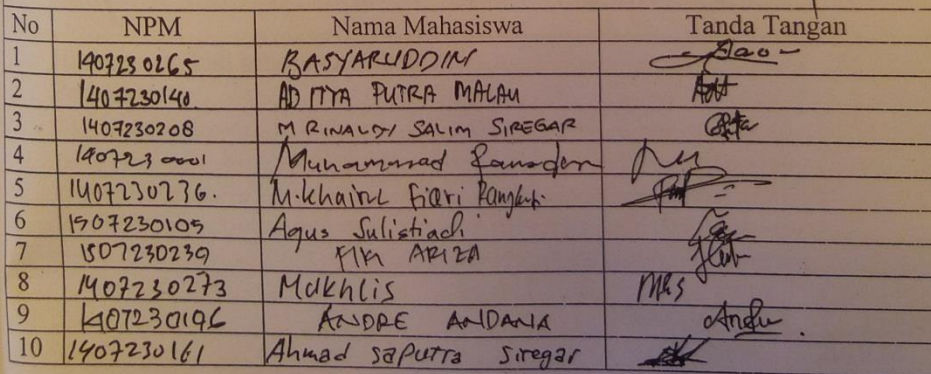 No NPM Nama Mahasiswa Tanda Tangan
1 1407230265 BASYARUDDIN
2 1407230140. ADITYA PUTRA MALAU
3 1407230208 M RINALDY SALIM SIREGAR
4 1407230001 Muhammad Ramadan
5 1407230236. M. Khairul Fiqri Rangkuti
6 1507230105 Agus Sulistiadi
7 1507230239 FIKI ARIZA
8 1407230273 Mukhlis
9 1407230196 ANDRE ANDANA Andre
10 1407230161 Ahmad Saputra Siregar